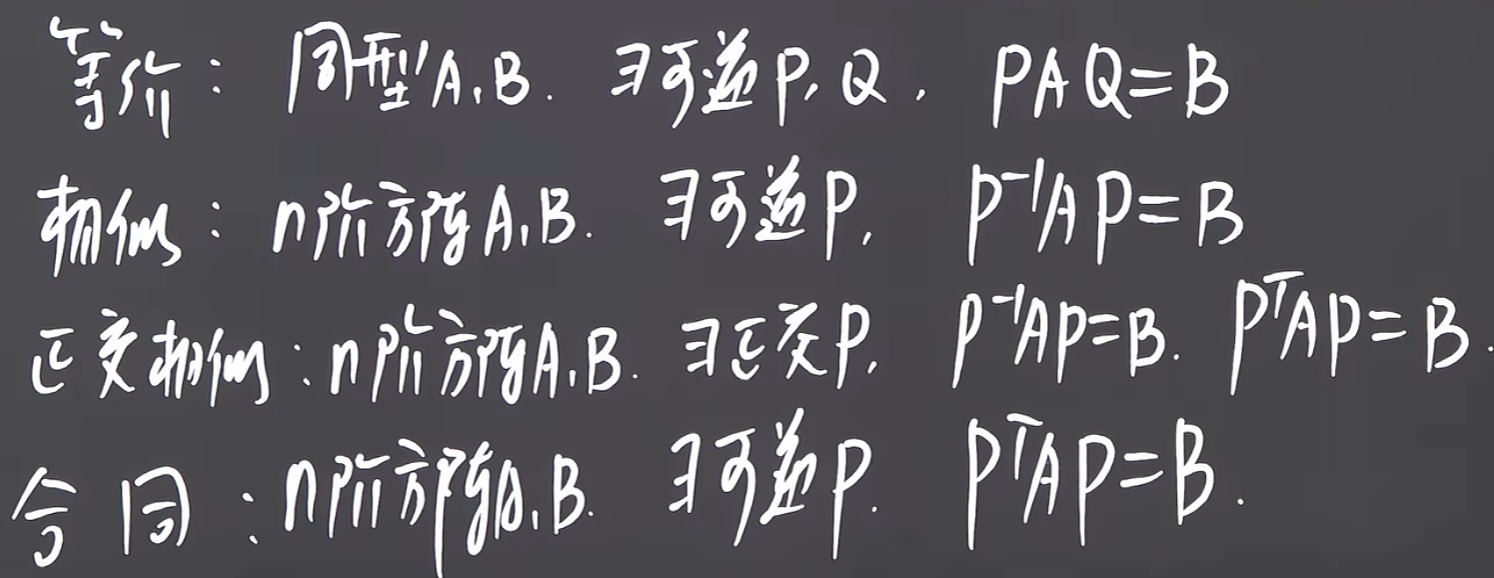 等价：同型A,B. ∃可逆P,Q, PAQ=B
相似：n阶方阵A,B. ∃可逆P, P⁻¹AP=B
正交相似：n阶方阵A,B. ∃正交P, P⁻¹AP=B. PᵀAP=B.
合同：n阶方阵A,B. ∃可逆P. PᵀAP=B.